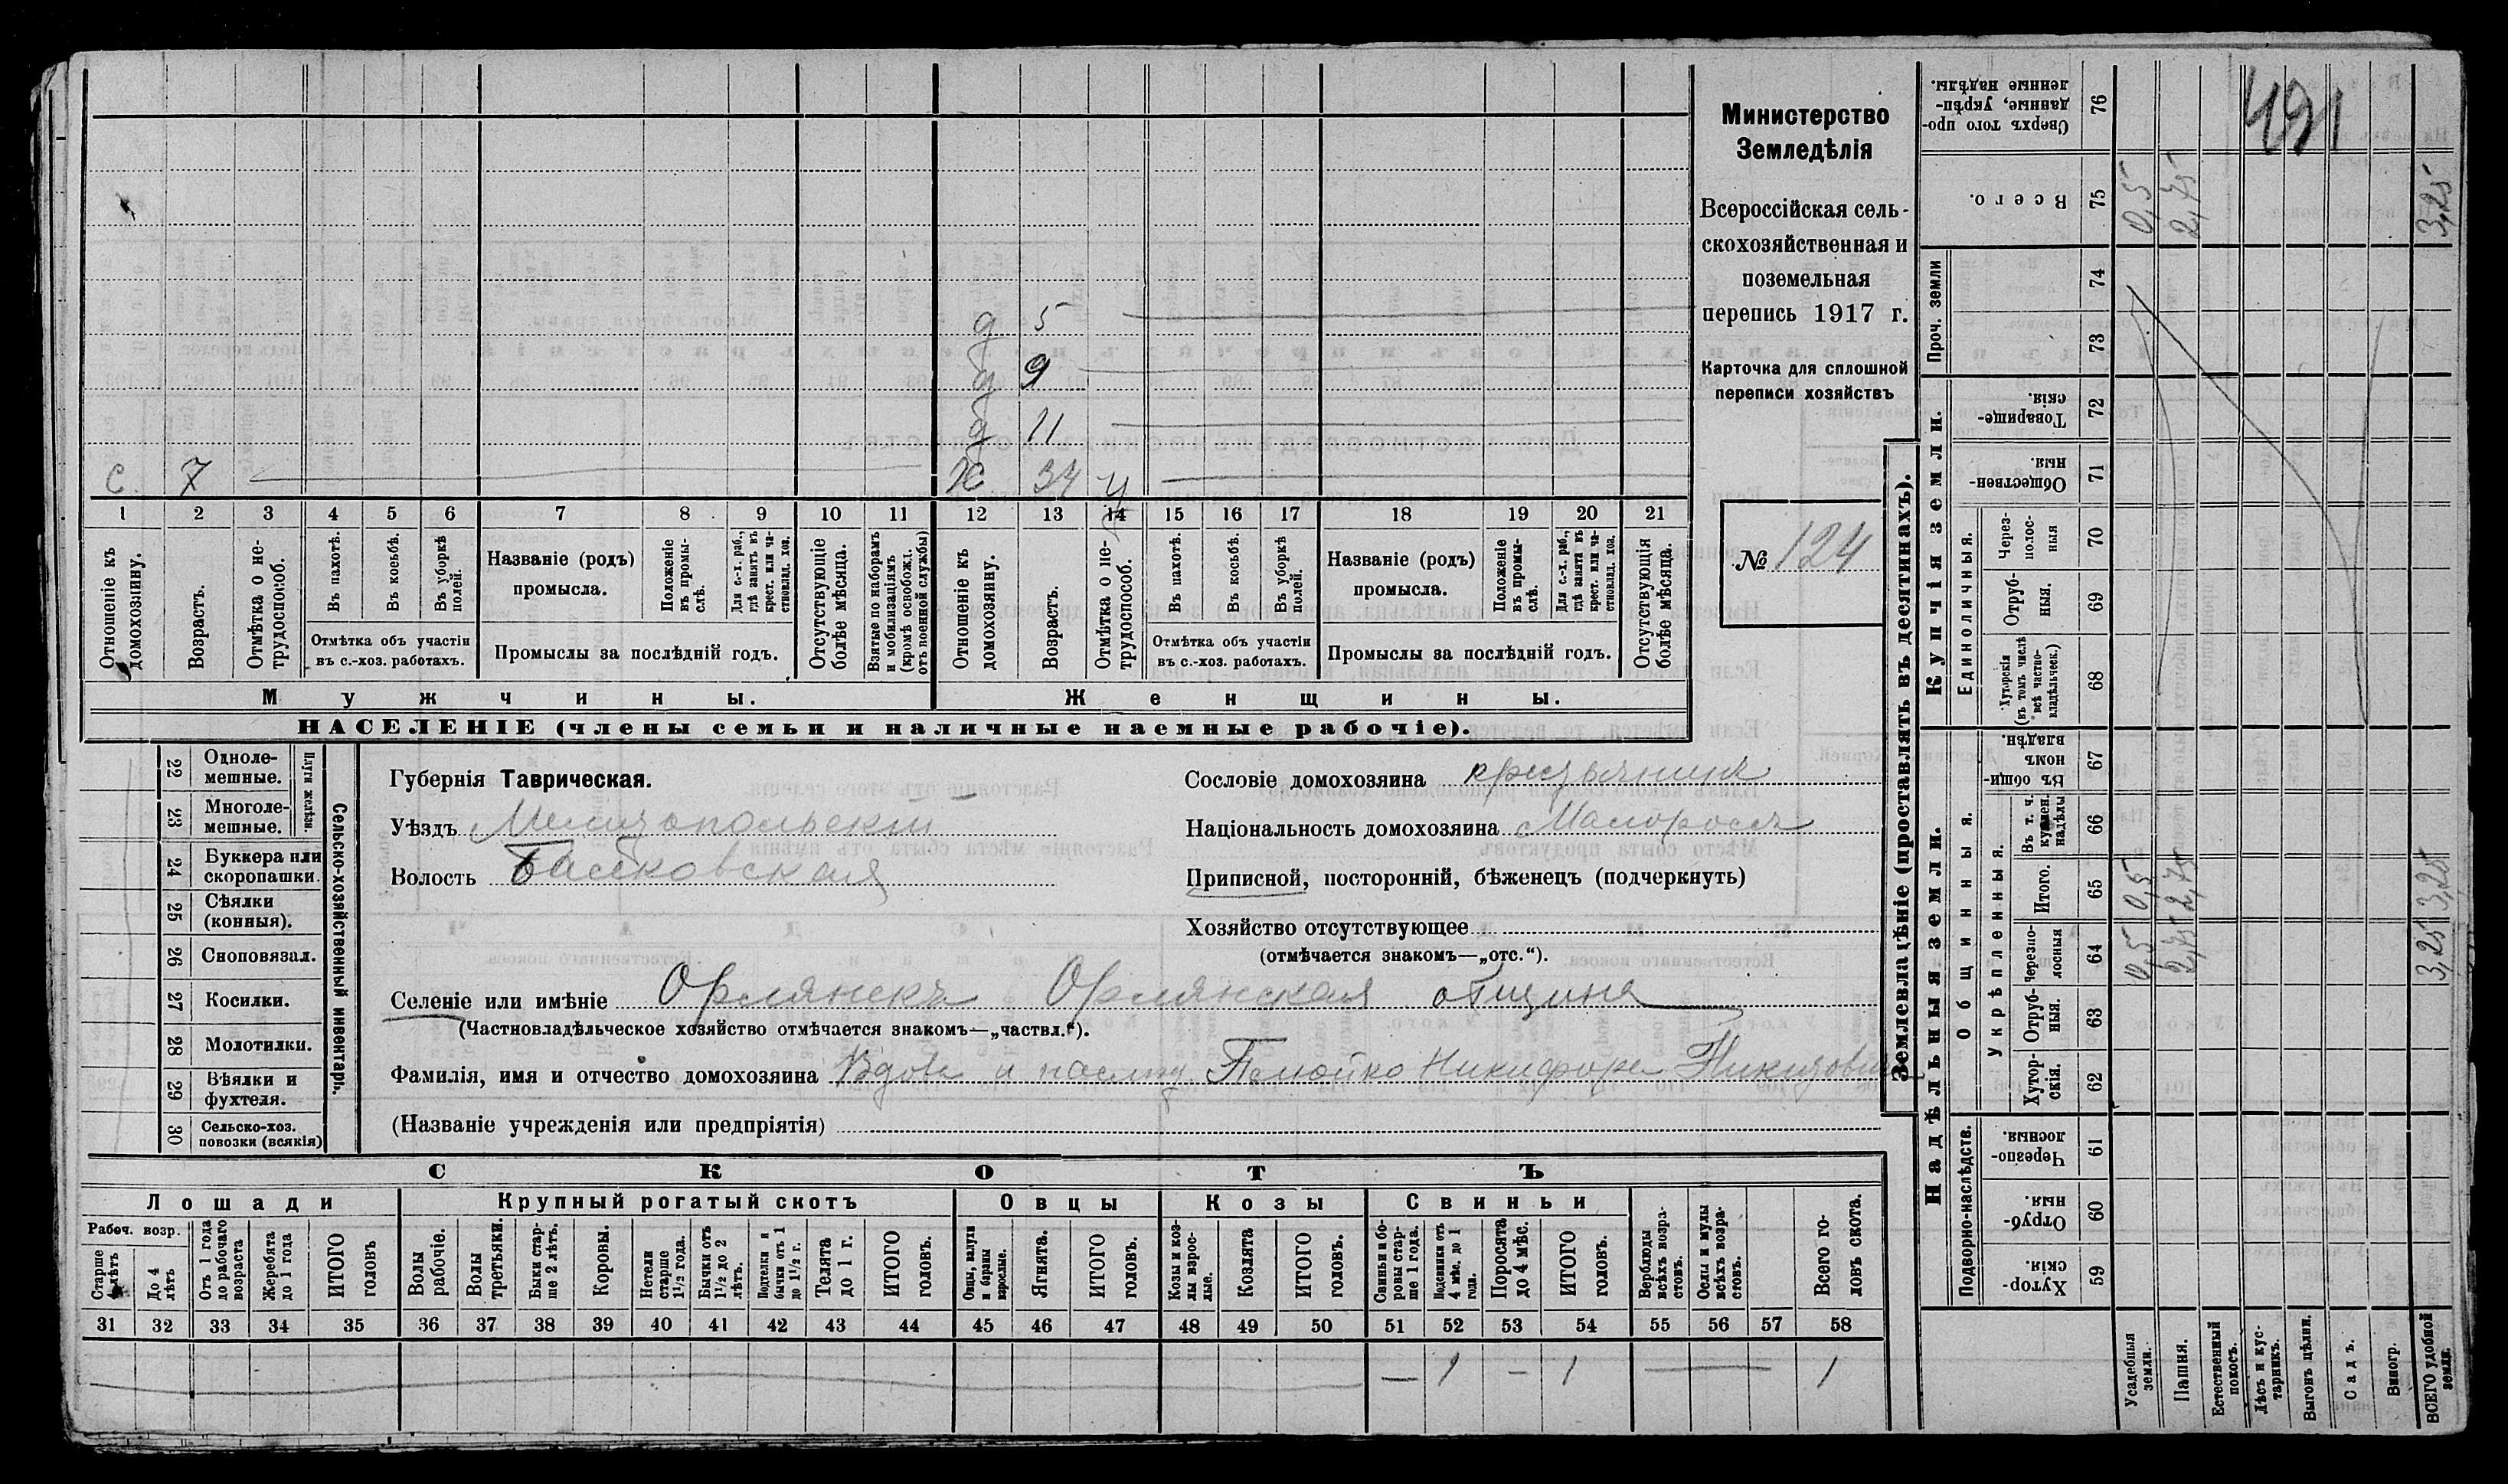 д 5
д 9
д 11
с. 7 ж 34
1 2 3 4 5 6 7 8 9 10 11 12 13 14 15 16 17 18 19 20 21
Отношеніе къ домохозяину.
Возрастъ.
Отмѣтка о не-трудоспособ.
Въ пахотѣ.
Въ косьбѣ.
Въ уборкѣ полей.
Отмѣтка объ участіи
въ с.-хоз. работахъ.
Названіе (родъ)
промысла.
Положеніе въ промы-слѣ.
Для с.-х. раб., гдѣ занятъ въ крест. или ча-стновлад. хоз.
Промыслы за послѣдній годъ.
Отсутствующіе болѣе мѣсяца.
Взятые по наборамъ и мобилизаціямъ (кромѣ освобожд. отъ военной службы)
Отношеніе къ домохозяину.
Возрастъ.
Отмѣтка о не-трудоспособ.
Въ пахотѣ.
Въ косьбѣ.
Въ уборкѣ полей.
Отмѣтка объ участіи
въ с.-хоз. работахъ.
Названіе (родъ)
промысла.
Положеніе въ промы-слѣ.
Для с.-х. раб., гдѣ занятъ въ крест. или ча-стновлад. хоз.
Промыслы за послѣдній годъ.
Отсутствующія болѣе мѣсяца.
Мужчины.
Женщины.
НАСЕЛЕНІЕ (члены семьи и наличные наемные рабочіе).
Министерство
Земледѣлія
Всероссійская сель-
скохозяйственная и
поземельная
перепись 1917 г.
Карточка для сплошной
переписи хозяйствъ
№ 124
22 Одноле-
мешные.
23 Многоле-
мешные.
Плуги желѣзн.
24 Буккера или
скоропашки.
25 Сѣялки
(конныя).
26 Сноповязал.
27 Косилки.
28 Молотилки.
29 Вѣялки и
фухтеля.
30 Сельско-хоз.
повозки (всякія)
Сельско-хозяйственный инвентарь.
Губернія Таврическая.
Уѣздъ Мелитопольскій
Волость Балковская
Сословіе домохозяина крестьянинъ
Національность домохозяина Малороссъ
Приписной, посторонній, бѣженецъ (подчеркнуть)
Хозяйство отсутствующее
(отмѣчается знакомъ—„отс.“).
Селеніе или имѣніе Орлянскъ Орлянская община
(Частновладѣльческое хозяйство отмѣчается знакомъ—„частвл.“).
Фамилія, имя и отчество домохозяина Вдова и наслѣд. Никифора
(Названіе учрежденія или предпріятія)
СКОТЪ
Лошади
Крупный рогатый скотъ
Овцы
Козы
Свиньи
Рабоч. возр.
Старше 4 лѣтъ
До 4 лѣтъ
Отъ 1 года до рабочаго возраста
Жеребята до 1 года
ИТОГО головъ
Волы рабочіе.
Волы третьяки.
Быки стар-ше 2 лѣтъ.
Коровы.
Нетели старше 1½ года.
Бычки отъ 1½ до 2 лѣтъ.
Подтелки и бычки отъ 1 до 1½ г.
Телята до 1 г.
ИТОГО головъ.
Овцы, валухи и бараны взрослые.
Ягнята.
ИТОГО головъ.
Козы и коз-лы взрос-лые.
Козлята
ИТОГО головъ.
Свиньи и бо-ровы стар-ше 1 года.
Подсвинки отъ 4 мѣс. до 1 года.
Поросята до 4 мѣс.
ИТОГО головъ.
Верблюды всѣхъ возра-стовъ.
Ослы и мулы всѣхъ возра-стовъ.
Всего го-ловъ скота.
31 32 33 34 35 36 37 38 39 40 41 42 43 44 45 46 47 48 49 50 51 52 53 54 55 56 57 58
— 1 — 1 — 1
Землевладѣніе (проставлять въ десятинахъ).
Сверхъ того про-данные, укрѣп-ленные надѣлы. 76
491
Всего. 75 0,5 2,75 3,25
Проч. земли
74
73
Купчія земли.
Товарище-скія. 72
Обществен-ныя. 71
Единоличныя.
Через-полос-ныя 70
Отруб-ныя. 69
Хуторскія (въ томъ числѣ всѣ частно-владѣльческ.) 68
Надѣльныя земли.
Общинныя.
Въ общи-номъ владѣн. 67
Укрѣпленныя.
Въ т. ч. куплен. надѣлы 66
Итого. 65 0,5 2,75 3,25
Черезпо-лосныя 64 0,5 2,75 3,25
Отруб-ныя. 63
Хутор-скія. 62
Подворно-наслѣдств.
Черезпо-лосныя. 61
Отруб-ныя. 60
Хутор-скія. 59
Усадебныя земли.
Пашня.
Естественный покосъ.
Лѣсъ и кус-тарникъ.
Выгонъ цѣлин.
Садъ.
Виногр.
ВСЕГО удобной земли.